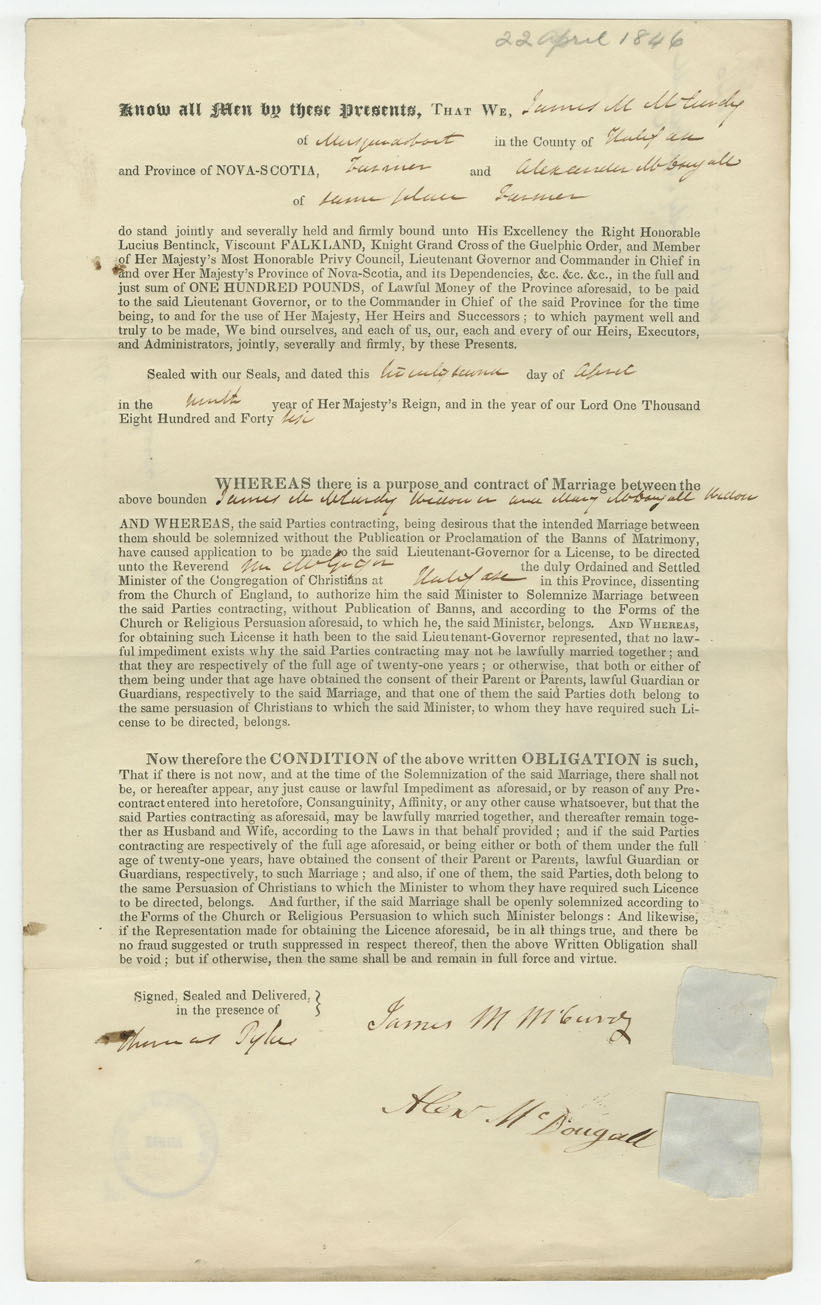 22 April 1846
Know all Men by these Presents, THAT WE, James M McCurdy
of Musquodoboit in the County of Halifax
and Province of NOVA-SCOTIA, Farmer and Alexander McDougall
of same place Farmer
do stand jointly and severally held and firmly bound unto His Excellency the Right Honorable
Lucius Bentinck, Viscount FALKLAND, Knight Grand Cross of the Guelphic Order, and Member
of Her Majesty's Most Honorable Privy Council, Lieutenant Governor and Commander in Chief in
and over Her Majesty's Province of Nova-Scotia, and its Dependencies, &c. &c. &c., in the full and
just sum of ONE HUNDRED POUNDS, of Lawful Money of the Province aforesaid, to be paid
to the said Lieutenant Governor, or to the Commander in Chief of the said Province for the time
being, to and for the use of Her Majesty, Her Heirs and Successors; to which payment well and
truly to be made, We bind ourselves, and each of us, our, each and every of our Heirs, Executors,
and Administrators, jointly, severally and firmly, by these Presents.
Sealed with our Seals, and dated this twenty second day of April
in the ninth year of Her Majesty's Reign, and in the year of our Lord One Thousand
Eight Hundred and Forty six
WHEREAS there is a purpose and contract of Marriage between the
above bounden James M McCurdy Widower and Mary McDougall Widow
AND WHEREAS, the said Parties contracting, being desirous that the intended Marriage between
them should be solemnized without the Publication or Proclamation of the Banns of Matrimony,
have caused application to be made to the said Lieutenant-Governor for a License, to be directed
unto the Reverend McGregor the duly Ordained and Settled
Minister of the Congregation of Christians at Halifax in this Province, dissenting
from the Church of England, to authorize him the said Minister to Solemnize Marriage between
the said Parties contracting, without Publication of Banns, and according to the Forms of the
Church or Religious Persuasion aforesaid, to which he, the said Minister, belongs. AND WHEREAS,
for obtaining such License it hath been to the said Lieutenant-Governor represented, that no law-
ful impediment exists why the said Parties contracting may not be lawfully married together; and
that they are respectively of the full age of twenty-one years; or otherwise, that both or either of
them being under that age have obtained the consent of their Parent or Parents, lawful Guardian or
Guardians, respectively to the said Marriage, and that one of them the said Parties doth belong to
the same persuasion of Christians to which the said Minister, to whom they have required such Li-
cense to be directed, belongs.
Now therefore the CONDITION of the above written OBLIGATION is such,
That if there is not now, and at the time of the Solemnization of the said Marriage, there shall not
be, or hereafter appear, any just cause or lawful Impediment as aforesaid, or by reason of any Pre-
contract entered into heretofore, Consanguinity, Affinity, or any other cause whatsoever, but that the
said Parties contracting as aforesaid, may be lawfully married together, and thereafter remain toge-
ther as Husband and Wife, according to the Laws in that behalf provided; and if the said Parties
contracting are respectively of the full age aforesaid, or being either or both of them under the full
age of twenty-one years, have obtained the consent of their Parent or Parents, lawful Guardian or
Guardians, respectively, to such Marriage; and also, if one of them, the said Parties, doth belong to
the same Persuasion of Christians to which the Minister to whom they have required such Licence
to be directed, belongs. And further, if the said Marriage shall be openly solemnized according to
the Forms of the Church or Religious Persuasion to which such Minister belongs: And likewise,
if the Representation made for obtaining the Licence aforesaid, be in all things true, and there be
no fraud suggested or truth suppressed in respect thereof, then the above Written Obligation shall
be void; but if otherwise, then the same shall be and remain in full force and virtue.
Signed, Sealed and Delivered,
in the presence of
Thomas Pyke
James M McCurdy
Alexr McDougall